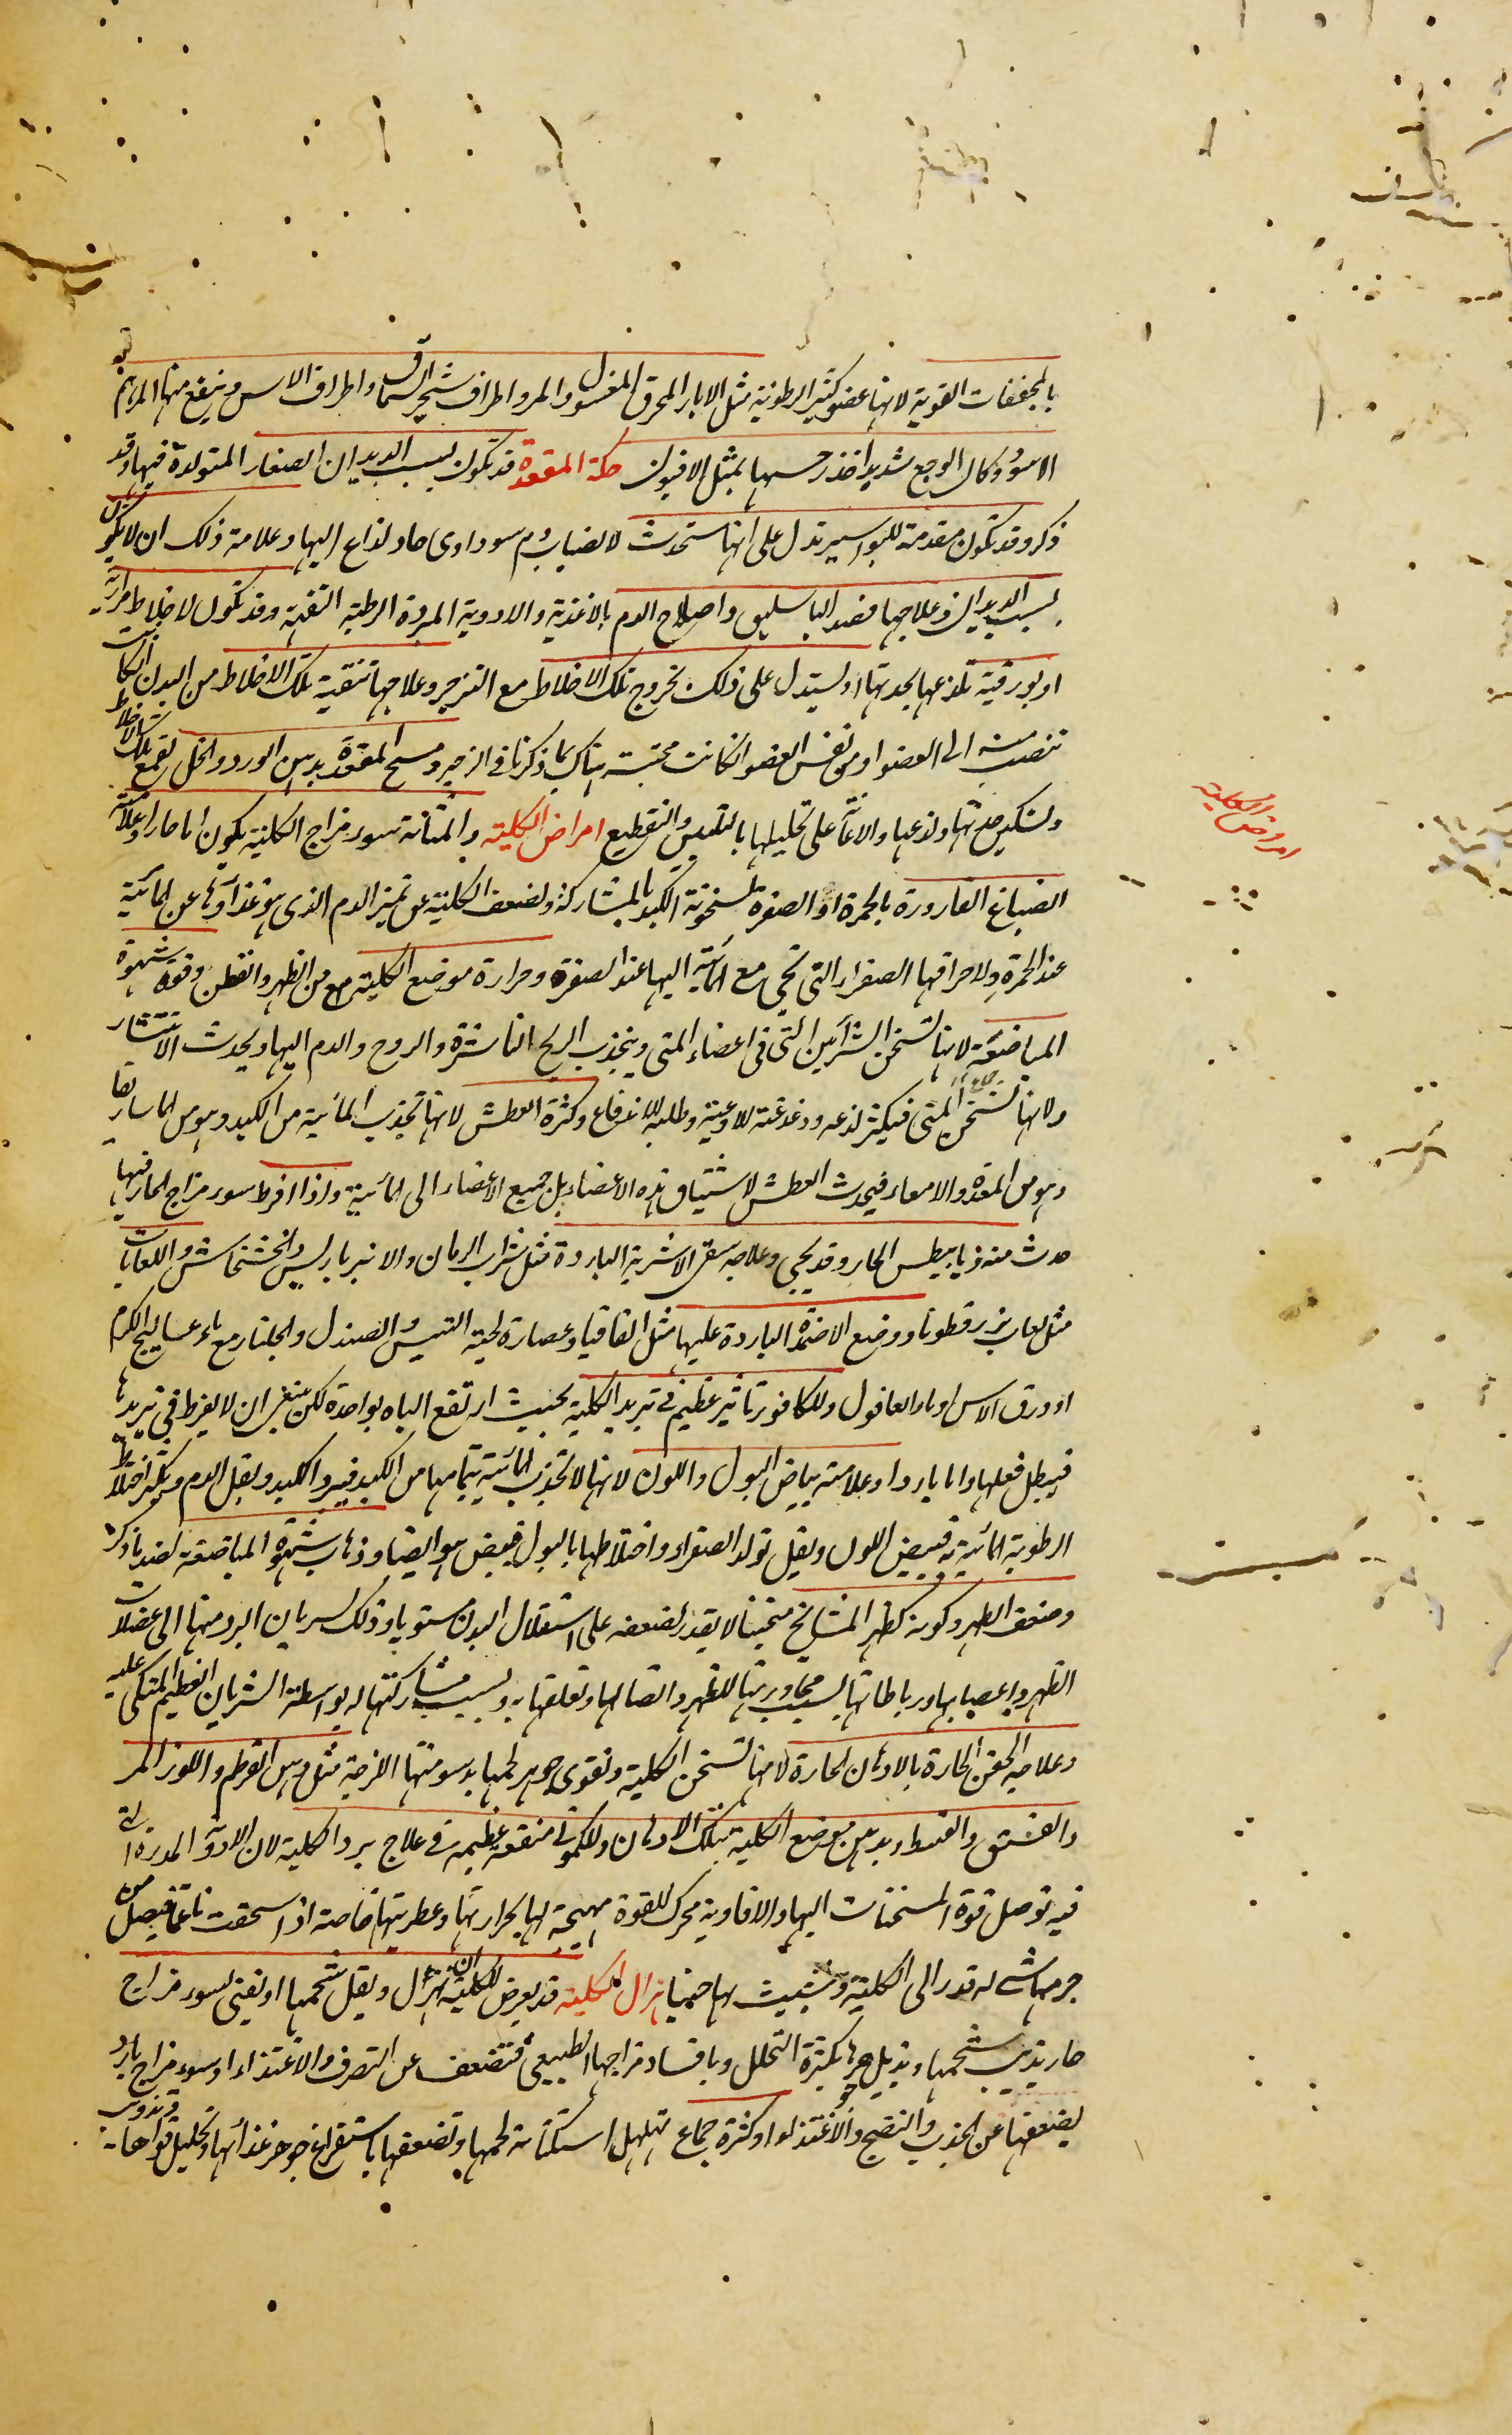 بالمجففات القوية لانها عضو كثير الرطوبة مثل الابار المحرق المغسول والمر واطراف شجر السماق واطراف الاس وينفع منها المرهم
الاسود وكان الوجع شديدا خذر حسها بمثل الافيون حكة المقعدة قد تكون بسبب الديدان الصغار المتولدة فيها وقد
ذكر وقد تكون مقدمة للبواسير تدل على انها ستحدث لانصباب دم سوداوى حاد لذاع اليها وعلامة ذلك ان لا يكون
بسبب الديدان وعلاجها فصد الباسليق واصلاح الدم بالاغذية والادوية المبردة الرطبة التفهة وقد تكون لاخلاط مرارية
او بورقية تلذعها بحدتها ويستدل على ذلك بخروج تلك الاخلاط مع الزحير وعلاجها تنقية تلك الاخلاط من البدن ان كانت
تنصب منه الى العضو او من نفس العضو ان كانت محتبسة هناك كما ذكرنا فى الزحير ومسح المقعدة بدهن الورد والخل لقمع تلك الاخلاط
وتسكين حدتها ولذعها والاعانة على تحليلها بالتلطيف والتقطيع امراض الكلية والمثانة سوء مزاج الكلية يكون اما حارا وعلامته
امراض الكلية
انصباغ القارورة بالحمرة او الصفرة لسخونة الكبد بالمشاركة ولضعف الكلية عن تميز الدم الذى هو غذاؤها عن المائية
عند الحمرة ولاحراقها الصفراء التى تجى مع المائية اليها عند الصفرة وحرارة موضع الكلية مع من الظهر والقطن وقوة شهوة
المباضعة لانها تسخن الشرائين التى فى اعضاء المنى وينجذب الريح الناشرة والروح والدم اليها ويحدث الانتشار
ولانها تسخن المنى فيكثر لذعه ودغدغته للاوعية وطلبه للاندفاع وكثرة العطش لانها تجذب المائية من الكبد وهو من الماساريقا
وهو من المعدة والامعاء فيحدث العطش لاشتياق هذه الاعضاء بل جميع الاعضاء الى المائية واذا افرط سوء مزاج الحار فيها
حدث منه ذيابيطس الحار وقد يجى وعلاجه سقى الاشربة الباردة مثل شراب الرمان والانبرباريس والخشخاش واللعابات
مثل لعاب بزر قطونا ووضع الاضمدة الباردة عليها مثل اقاقيا وعصارة لحية التيس والصندل والجلنار مع ماء عساليج الكرم
او ورق الاس او ماء العاقول وللكافور تاثير عظيم فى تبريد الكلية بحيث ارتفع الباه بواحدة لكن ينبغى ان لا يفرط فى تبريدها
فيبطل فعلها واما باردا وعلامته بياض البول واللون لانها لا تجذب المائية بتمامها من الكبد فيبرد الكبد ويقل الدم ويكثر اختلاط
الرطوبة المائية به فيبيض اللون ويقل تولد الصفراء واختلاطها بالبول فيبيض هو ايضا وذهاب شهوة المباضعة لضد ما ذكر
وضعف الظهر وكونه كظهر المشايخ منحنيا لا يقدر لضعفه على استقلال البدن مستويا وذلك لسريان البرد منها الى عضلات
الظهر واعصابها ورباطاتها بسبب مجاورتها للظهر واتصالها وتعلقها به وبسبب مشاركتها له بواسطة الشريان العظيم المتكى عليه
وعلاجه الحقن الحارة بالادهان الحارة لانها تسخن الكلية وتقوى جوهر لحمها بدسومتها اللزجة مثل دهن القرطم واللوز المر
والفستق والقسط وتدهين موضع الكلية بتلك الادهان وللكمونى منفعة عظيمة فى علاج برد الكلية لان الادوية المدرة التى
فيه توصل قوة المسخنات اليها والافاوية محرك للقوة مهيجة لها بحرارتها وعطريتها خاصة اذا سحقت ناعما فيصل من
جرمها شى له قدر الى الكلية ويتشبث بها حينا هزال الكلية قد يعرض للكلية ان تهزل ويقل شحمها او يفنى لسوء مزاج
حار يذيب شحمها ويذبل جوهرها بكثرة التحلل وبافساد مزاجها الطبيعى فتضعف عن التصرف والاغتذاء او سوء مزاج بارد
يضعفها عن الجذب والنضج والاغتذاء او كثرة جماع تهلهل استكنانة لحمها وتضعفها باستفراغ جوهر غذائها وتحليل قواها